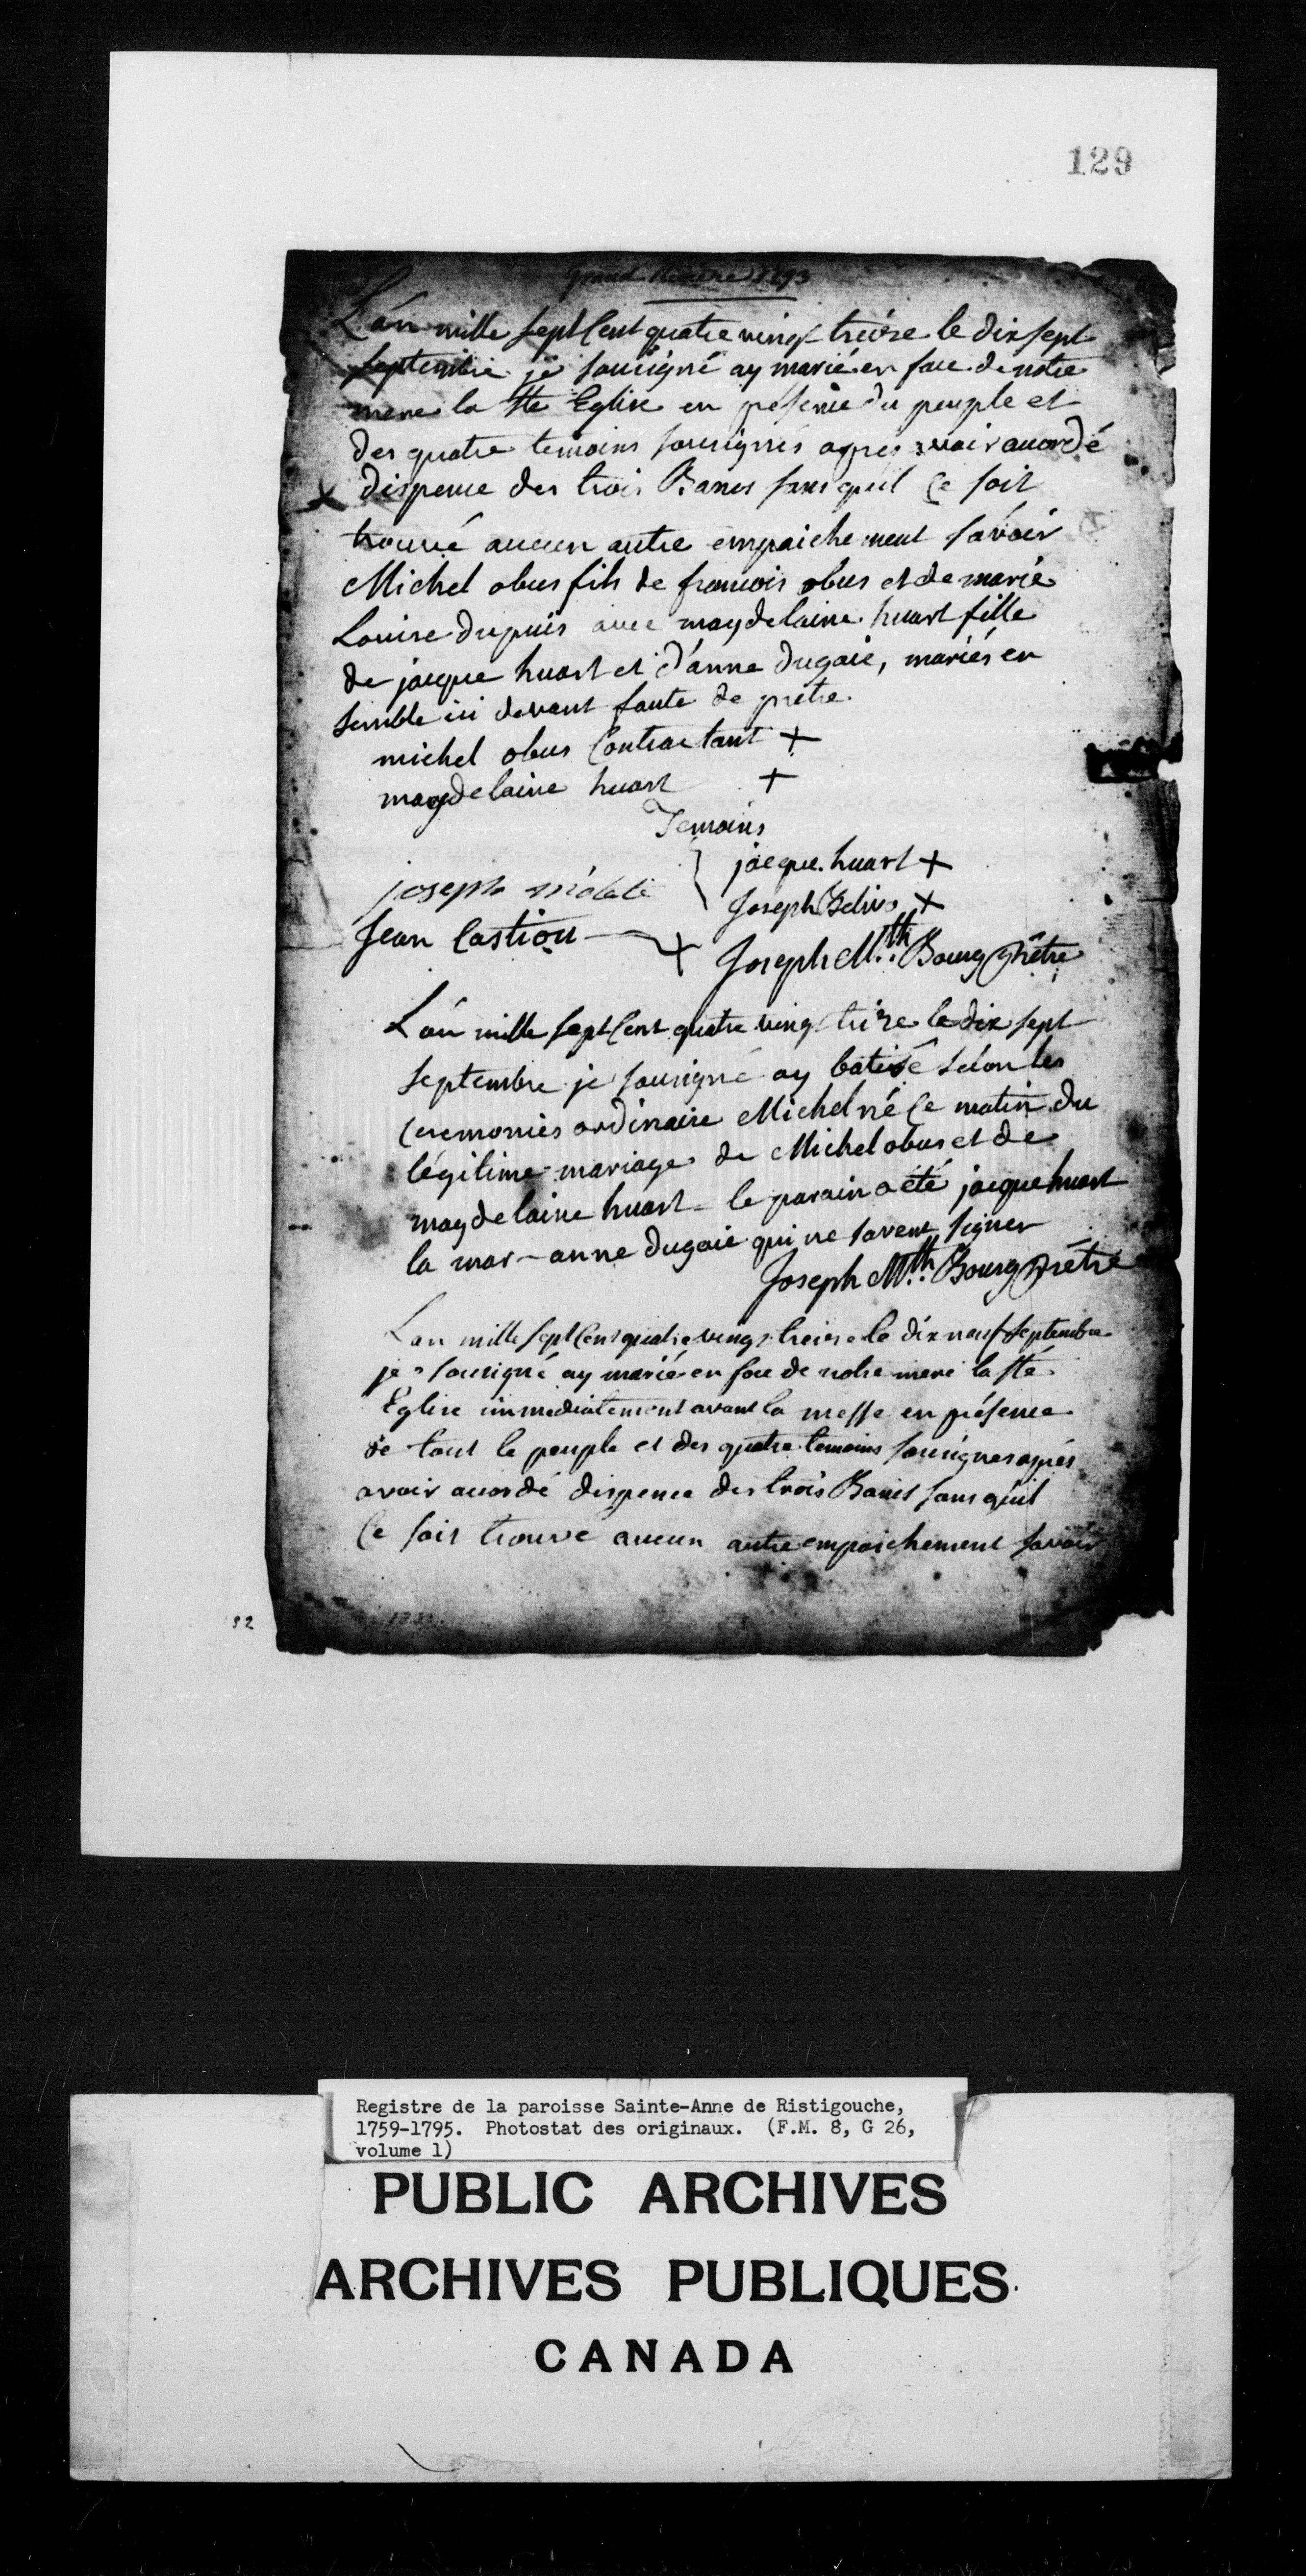 129
Grand Riviere 1793
L'an mille sept Cent quatre vingt treize le dix sept
septembre je sousigné ay marié en face de notre
mere la Ste Eglise en présence du peuple et
des quatre temoins sousignés apres avoir acordé
dispence des trois Banes sans quil Ce soit
trouvé aucun autre empaichement savoir
Michel obus fils de francois obus et de marie
Louise dupuis avec magdelaine huart fille
de jacque huart et d'anne dugaie, mariés en
semble ici devant faute de pretre.
michel obus Contractant +
magdelaine huart +
Temoins
jacque huart +
joseph
Joseph +
Jean Castiou +
Joseph Mth. Bourg Prêtre
L'an mille sept Cent quatre ving treize le dix sept
septembre je sousigné ay batisé selon les
Ceremonies ordinaire Michel né Ce matin du
légitime mariage de Michel obus et de
magdelaine huart le parain a été jacque huart
la mar - anne dugaie qui ne savent signer
Joseph Mth. Bourg Prêtre
L'an mille sept Cent quatre vingt treize le dix neuf septembre
je sousigné ay marié en face de notre mere la Ste
Eglise immediatement avant la messe en présence
de tout le peuple et des quatre temoins sousignes apres
avoir acordé dispence des trois Banes sans quil
Ce soit trouve aucun autre empaichement savoir
52
Registre de la paroisse Sainte-Anne de Ristigouche,
1759-1795. Photostat des originaux. (F.M. 8, G 26,
volume 1)
PUBLIC ARCHIVES
ARCHIVES PUBLIQUES
CANADA